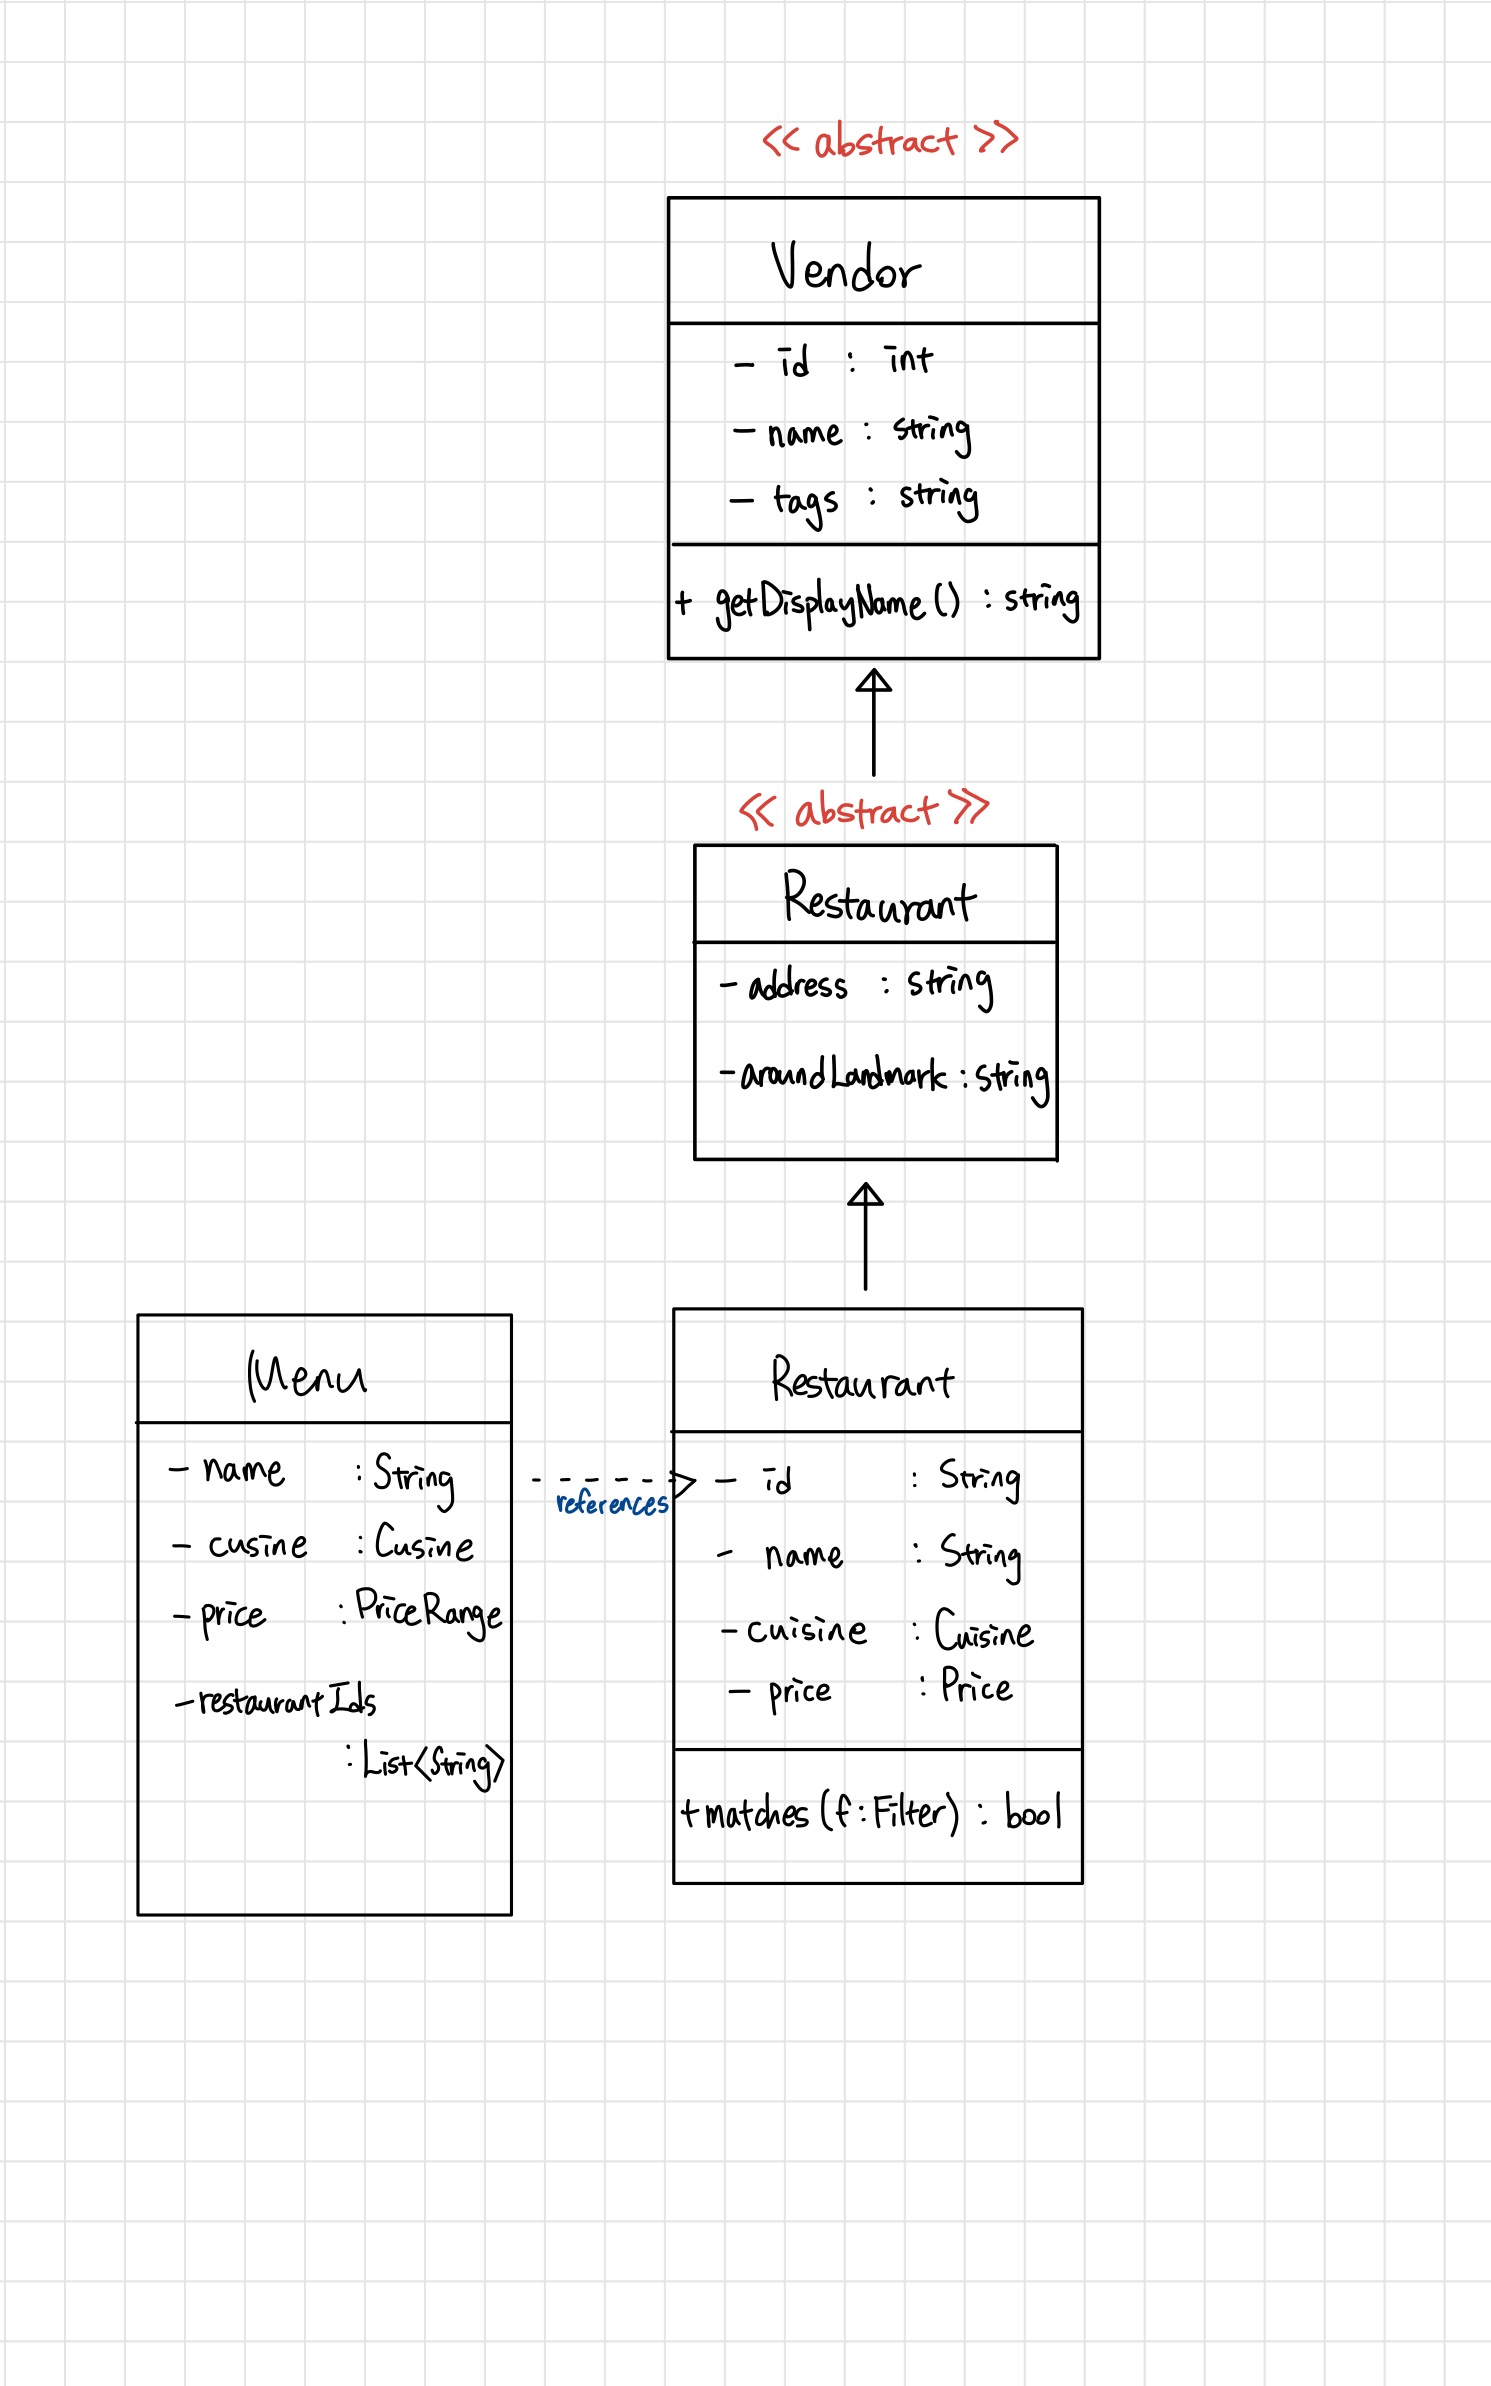 << abstract >>
Vendor
- id : int
- name : string
- tags : string
+ getDisplayName() : string
<< abstract >>
Restaurant
- address : string
- aroundLandmark : string
Menu
- name : String
- cusine : Cusine
- price : PriceRange
- restaurantIds
: List<String>
references
Restaurant
- id : String
- name : String
- cuisine : Cuisine
- price : Price
+ matches (f : Filter) : bool